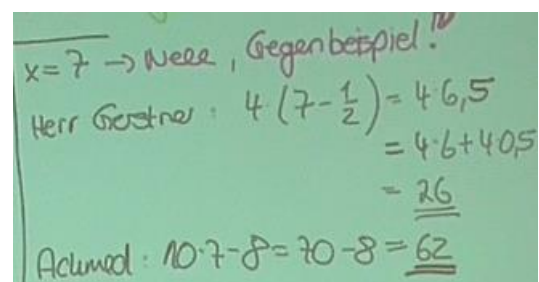 x = 7 → Neee, Gegenbeispiel!
Herr Gerstner: 4·(7-1/2) = 4·6,5
= 4·6+4·0,5
= 26
Achmed: 10·7-8=70-8=62